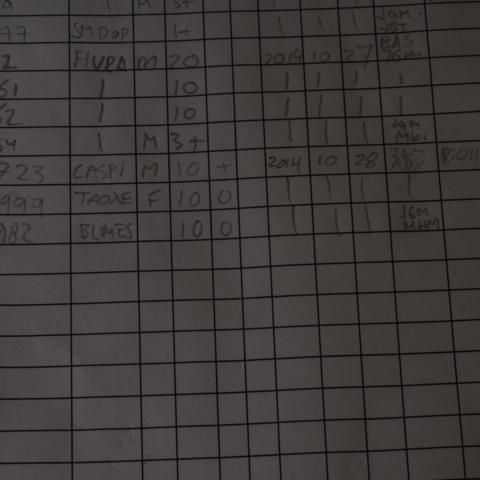 77 SMDOP 1+ | | | JGM. JBT
2 FIVRA M 20 2014 10 27 BAS JGM
61 | 10 | | | |
62 | 10 | | | |
64 | M 3+ | | | JGM MKI
723 CASPI M 10 + 2014 10 28 JGM ADY R:011
999 TAOXE F 10 0 | | | |
982 BLMES 10 0 | | | JGM MHM